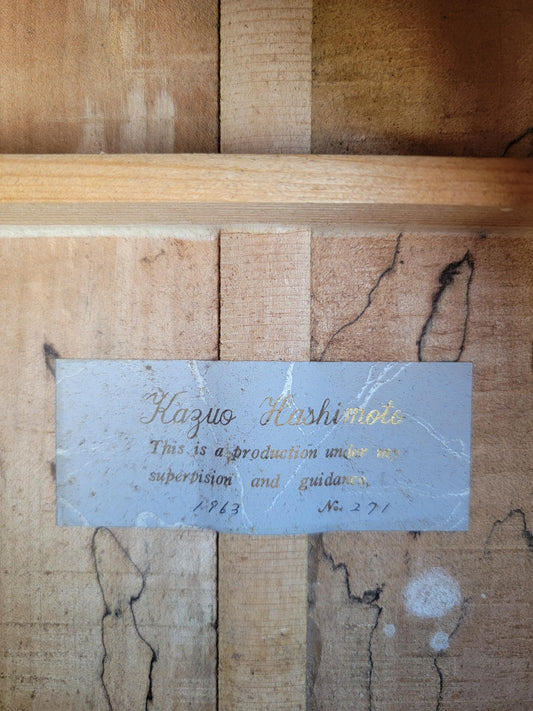 Kazuo Hashimoto
This is a production under my
supervision and guidance.
1963 No. 271